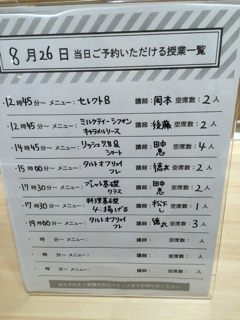 8月26日 当日ご予約いただける授業一覧
・12時45分～ メニュー：セレクトB 講師：岡本 空席数：2人
・12時45分～ メニュー：ミルクティーシフォン キャラメルソース 講師：後藤 空席数：2人
・14時45分～ メニュー： 講師：田中恵 空席数：4人
・15時00分～ メニュー：タルトオフリュイフレ 講師：徳丸 空席数：2人
・17時30分～ メニュー：ブレッド基礎クラス 講師：田中恵 空席数：2人
・17時30分～ メニュー：料理基礎 4：揚げる 講師：松下し 空席数：1人
・19時00分～ メニュー：タルトオフリュイフレ 講師：徳丸 空席数：3人
・ 時 分～ メニュー： 講師： 空席数： 人
・ 時 分～ メニュー： 講師： 空席数： 人